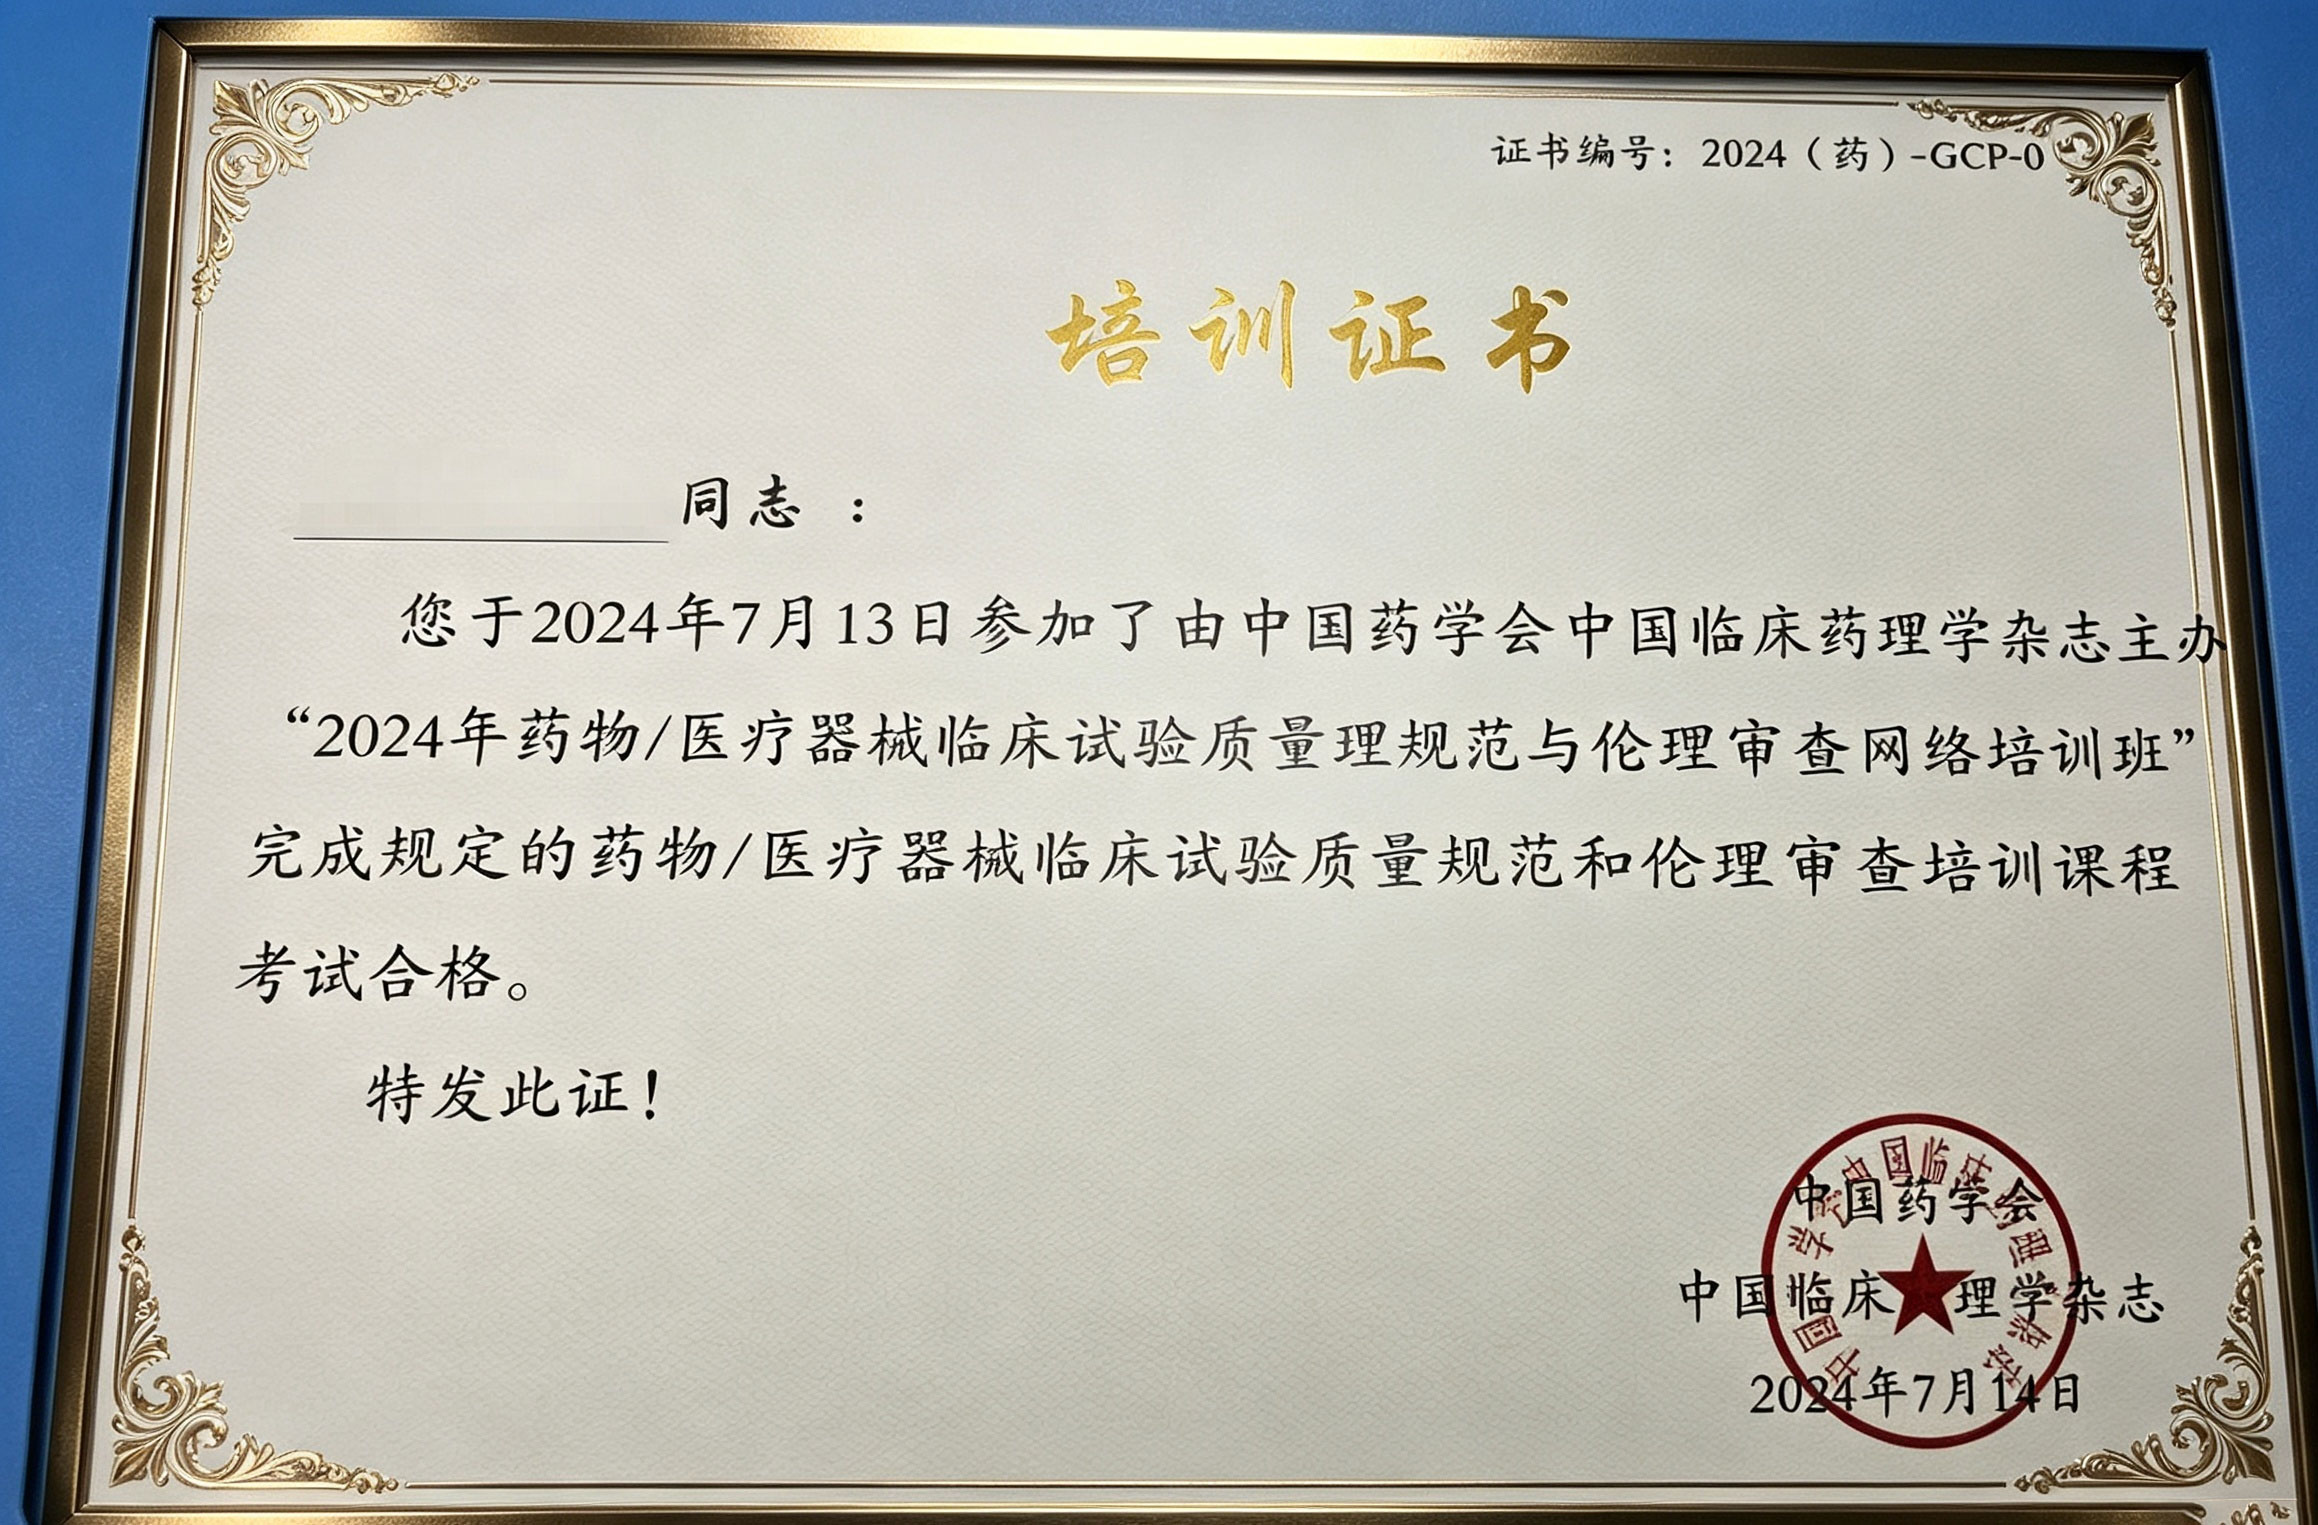 证书编号：2024（药）-GCP-0
培训证书
同志 ：
您于2024年7月13日参加了由中国药学会中国临床药理学杂志主办
“2024年药物/医疗器械临床试验质量理规范与伦理审查网络培训班”
完成规定的药物/医疗器械临床试验质量规范和伦理审查培训课程
考试合格。
特发此证！
中国药学会
中国临床 理学杂志
2024年7月14日